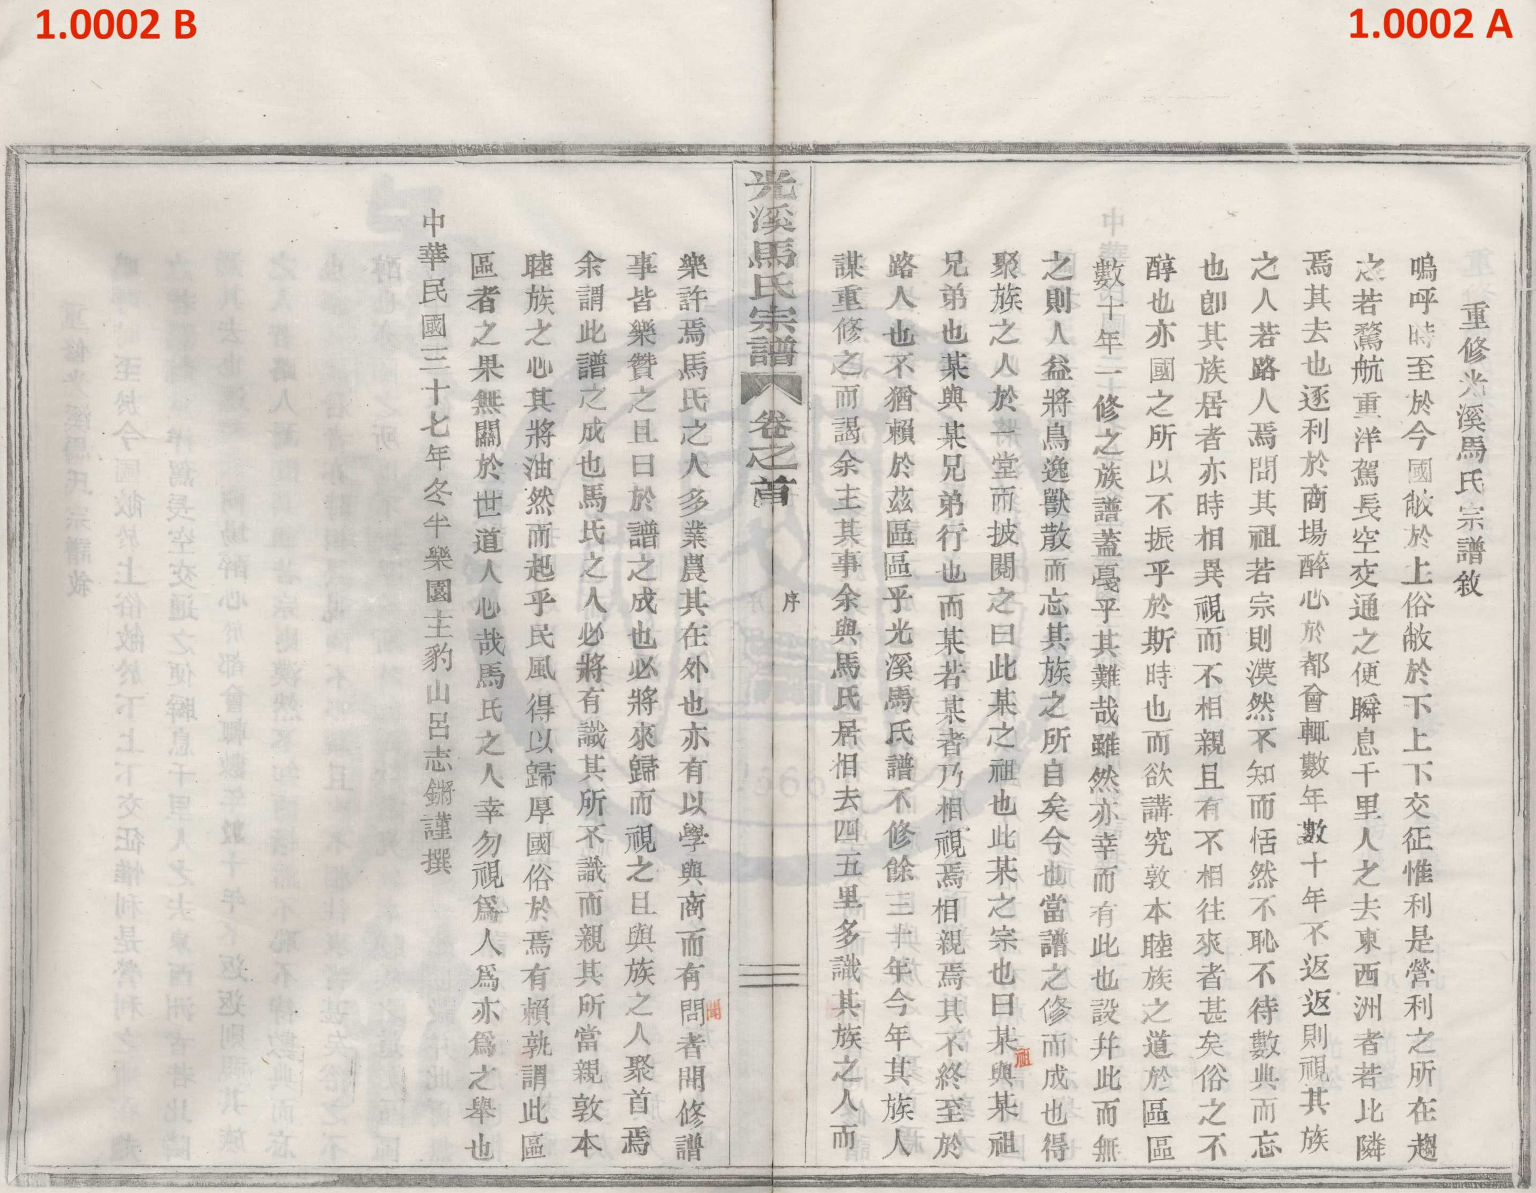 1.0002 B
1.0002 A
重修光溪馬氏宗譜敘
嗚呼時至於今國敝於上俗敝於下上下交征惟利是營利之所在趨
之若鶩航重洋駕長空交通之便瞬息千里人之去東西洲者若比隣
焉其去也逐利於商場醉心於都會輒數年數十年不返返則視其族
之人若路人焉問其祖若宗則漠然不知而恬然不恥不待數典而忘
也卽其族居者亦時相異視而不相親且有不相往來者甚矣俗之不
醇也亦國之所以不振乎於斯時也而欲講究敦本睦族之道於區區
數十年一修之族譜蓋戞乎其難哉雖然亦幸而有此也設幷此而無
之則人益將鳥逸獸散而忘其族之所自矣今也當譜之修而成也得
聚族之人於將堂而披閱之曰此某之祖也此某之宗也曰某與某祖
祖
兄弟也某與某兄弟行也而某若某者乃相視焉相親焉其不終至於
路人也不猶賴於茲區區乎光溪馬氏譜不修餘三十年今年其族人
謀重修之而謁余主其事余與馬氏居相去四五里多識其族之人而
光溪馬氏宗譜
卷之首
序
樂許焉馬氏之人多業農其在外也亦有以學與商而有問者開修譜
聞
事皆樂贊之且曰於譜之成也必將來歸而視之且與族之人聚首焉
余謂此譜之成也馬氏之人必將有識其所不識而親其所當親敦本
睦族之心其將油然而起乎民風得以歸厚國俗於焉有賴孰謂此區
區者之果無關於世道人心哉馬氏之人幸勿視爲人爲亦爲之舉也
中華民國三十七年冬半樂園主豹山呂志鏘謹撰